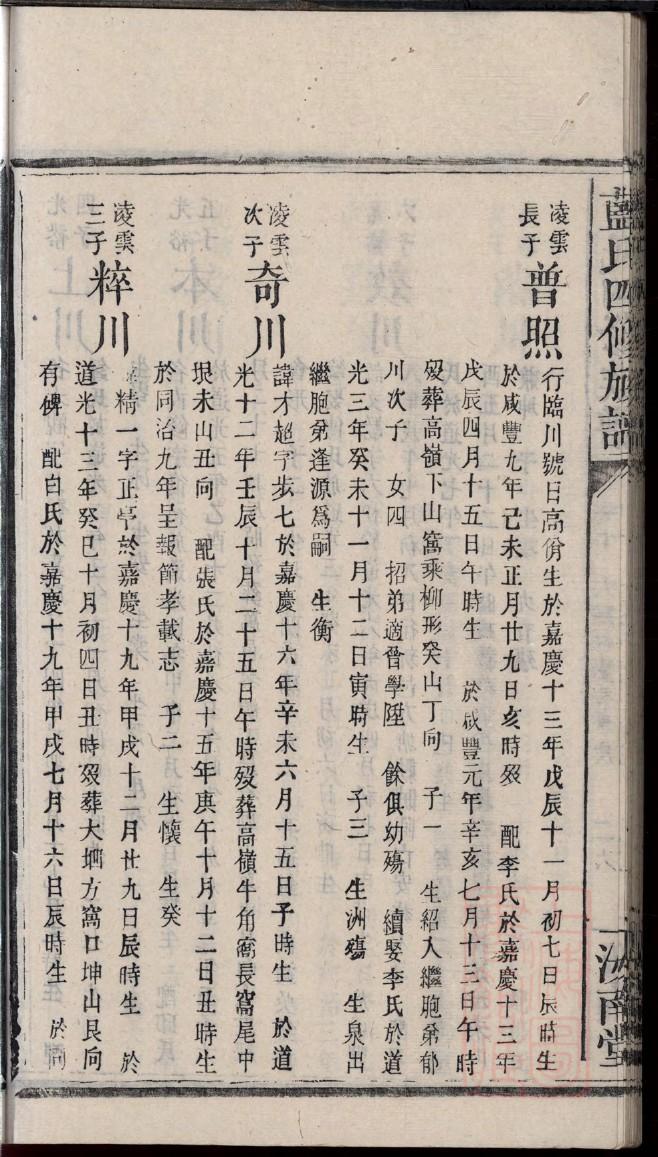 藍氏四修族譜
汝南堂
凌雲長子 普照
行臨川號日高俏生於嘉慶十三年戊辰十一月初七日辰時生
於咸豐九年己未正月廿九日亥時歿 配李氏於嘉慶十三年
戊辰四月十五日午時生 於咸豐元年辛亥七月十三日午時
歿葬高嶺下山窩乘柳形癸山丁向 子一 生紹入繼胞弟郁
川次子 女四 招弟適曾學陞 餘俱幼殤 續娶李氏於道
光三年癸未十一月十二日寅時生 子三 生洲殤 生泉出
繼胞弟逢源爲嗣 生衡
凌雲次子 奇川
諱才超字步七於嘉慶十六年辛未六月十五日子時生 於道
光十二年壬辰十月二十五日午時歿葬高嶺牛角窩長窩尾中
垠未山丑向 配張氏於嘉慶十五年庚午十月十二日丑時生
於同治九年呈報節孝載志 子二 生懷 生癸
凌雲三子 粹川
精一字正亭於嘉慶十九年甲戌十二月廿九日辰時生 於
道光十三年癸巳十月初四日丑時歿葬大坰方窩口坤山艮向
有碑 配白氏於嘉慶十九年甲戌七月十六日辰時生 於同